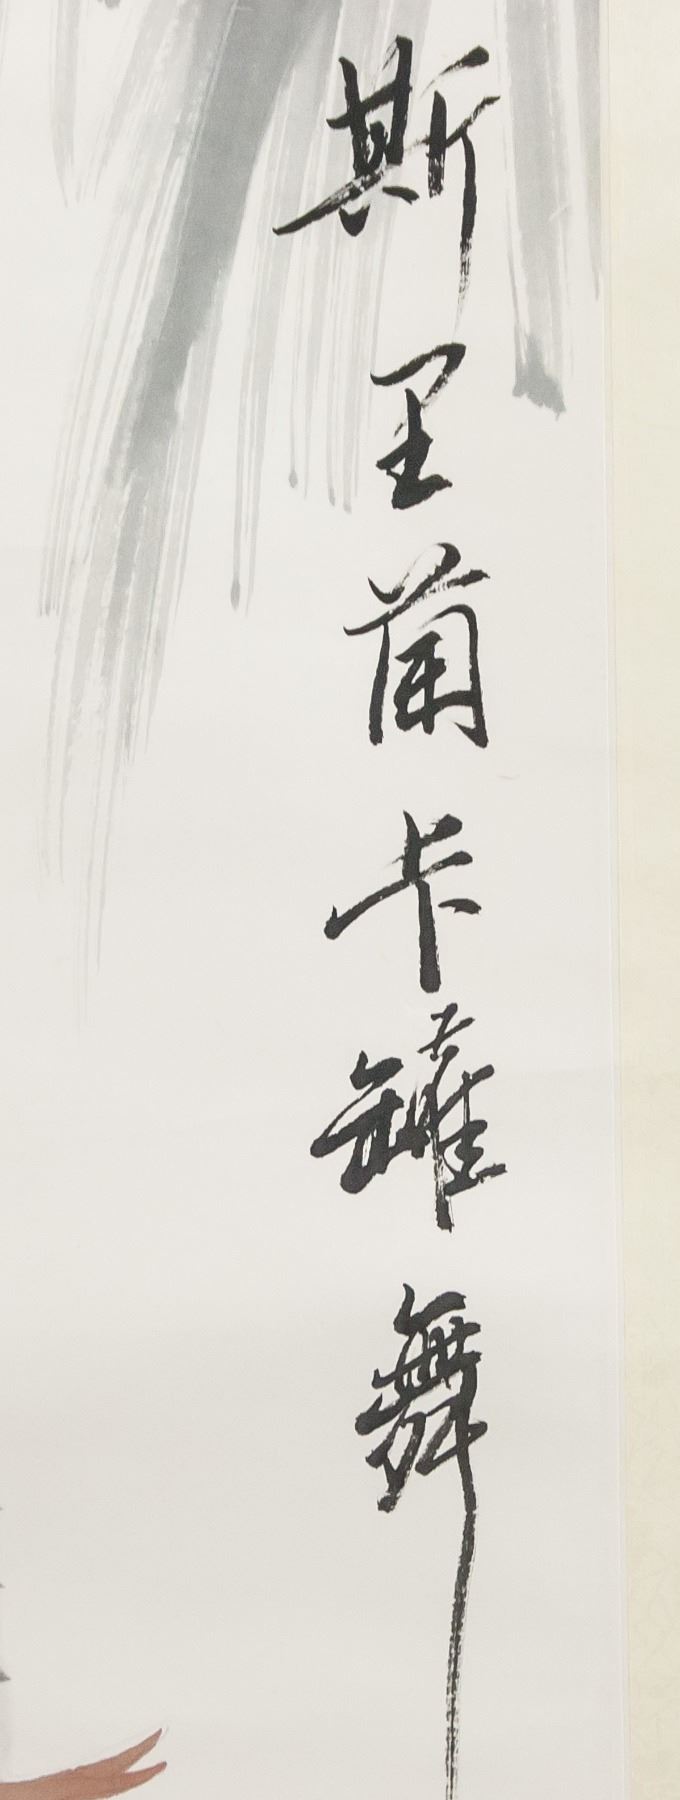 斯里蘭卡罐舞